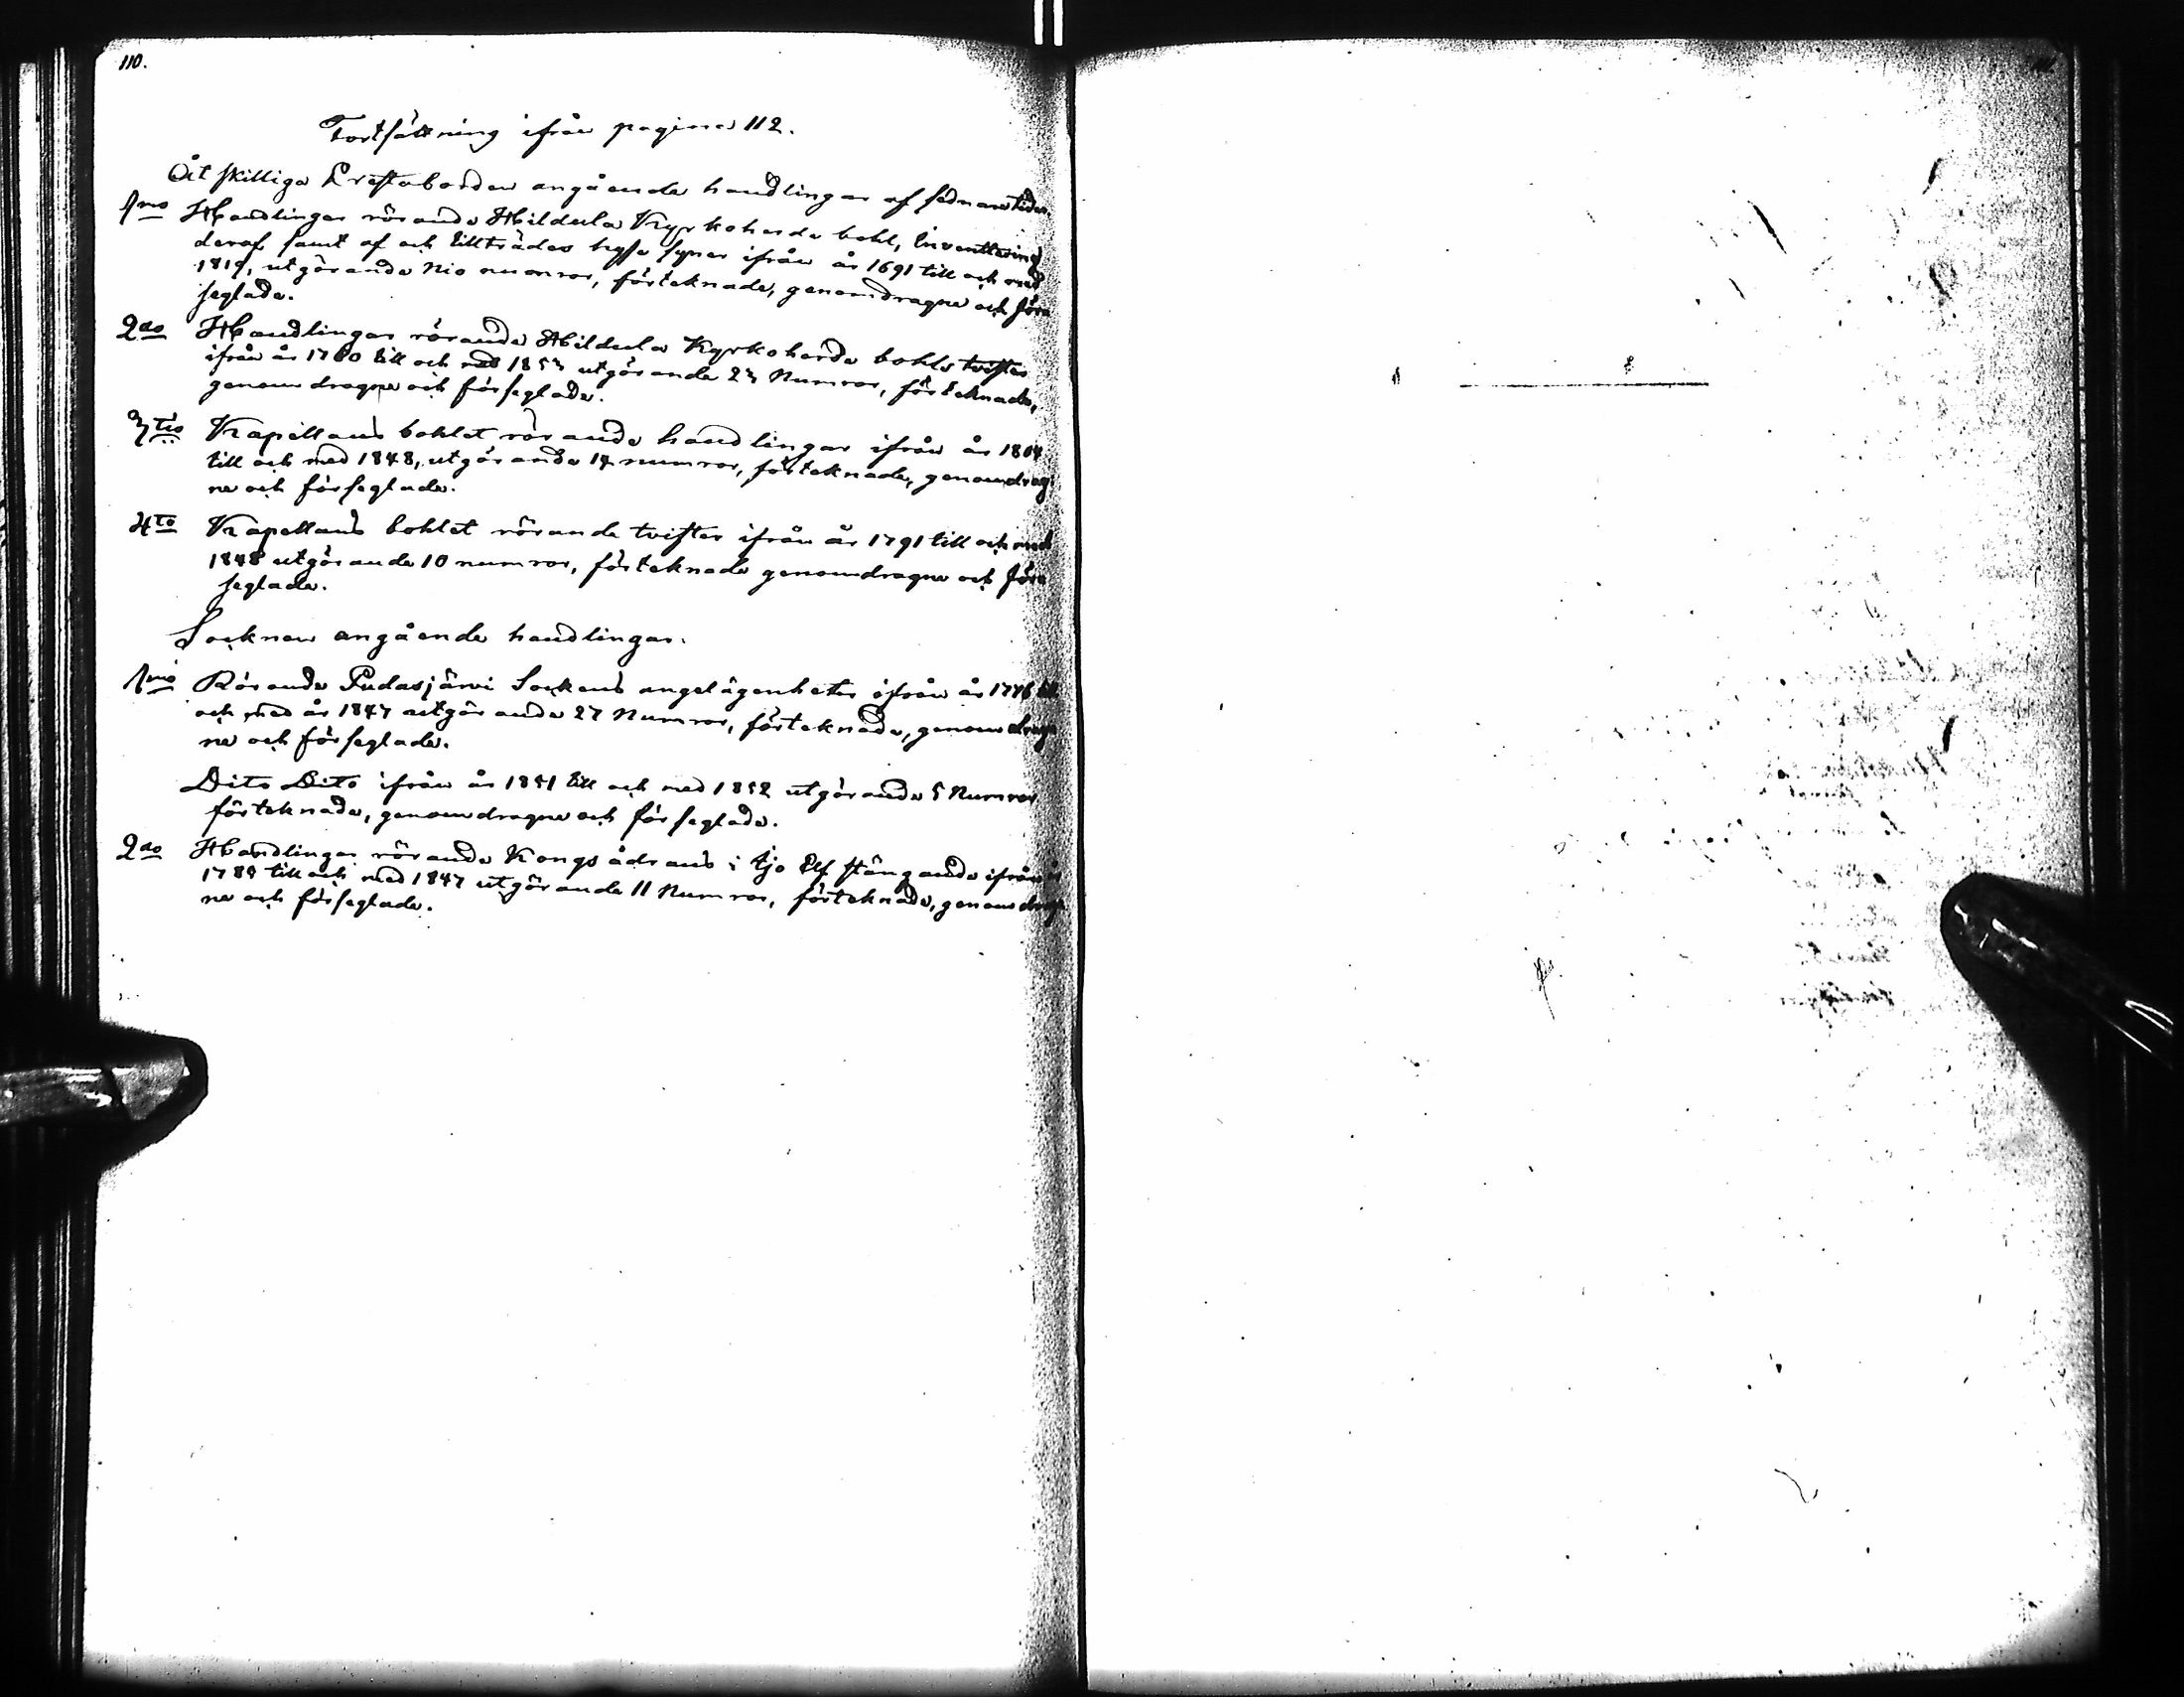 110.
Fortsättning ifrån pagina 112.
Åtskilliga Prestaborden angående handlingar af sednare tider.
1mo Handlingar rörande Hildula Kyrkoherde bohl, Inventering
deraf samt af och tillträdes husesyner ifrån år 1691 till och med
1819, utgörande Nio numror, förteknade, genomdragne och för=
seglade.
2do Handlingar rörande Hildula Kyrkoherde bohls tvister
ifrån år 1760 till och med 1853 utgörande 23 Numror, förteknade,
genomdragne och förseglade.
3tio Kapellans bohlet rörande handlingar ifrån år 1804
till och med 1848, utgörande 14 numror, förteknade, genomdrag=
ne och förseglade.
4to Kapellans bohlet rörande tvister ifrån år 1791 till och med
1848 utgörande 10 numror, förteknade genomdragne och för=
seglade.
Socknen angående handlingar.
1mo Rörande Pudasjärvi Sockens angelägenheter ifrån år 1776 till
och med år 1847 utgörande 27 Numror, förteknade, genomdrag=
ne och förseglade.
Dito Dito ifrån år 1851 till och med 1852 utgörande 5 Numror
förteknade, genomdragne och förseglade.
2do Handlingar rörande Kongsådrans i Ijo Elf stängande ifrån år
1784 till och med 1847 utgörande 11 Numror, förteknade, genomdrag=
ne och förseglade.